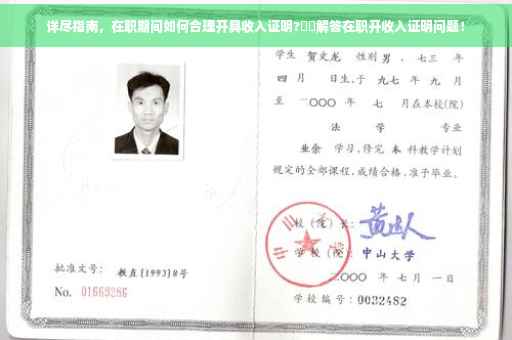 详尽指南，在职期间如何合理开具收入证明?▯▯解答在职开收入证明问题！
学生 贺文龙 性别 男 ，七三 年
四 月 日生，于 九七 年 九 月
至 二〇〇〇 年 七 月在本校(院)
法 学 专业
业余 学习，修完 本 科教学计划
规定的全部课程，成绩合格，准予毕业。
校（院）长：
学校（院）：中山大学
二〇〇〇 年 七 月 一 日
学校编号：0032482
批准文号：教直[1993]8号
No. 01669286